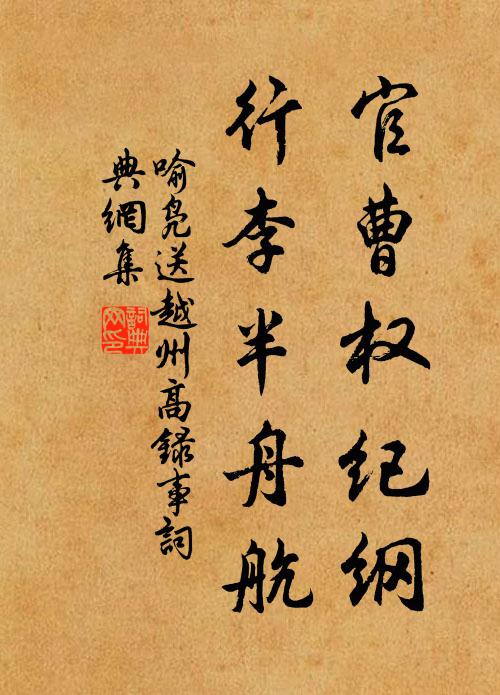 官曹权纪纲
行李半舟航
喻凫送越州高録事詞
典網集
詞典
网印